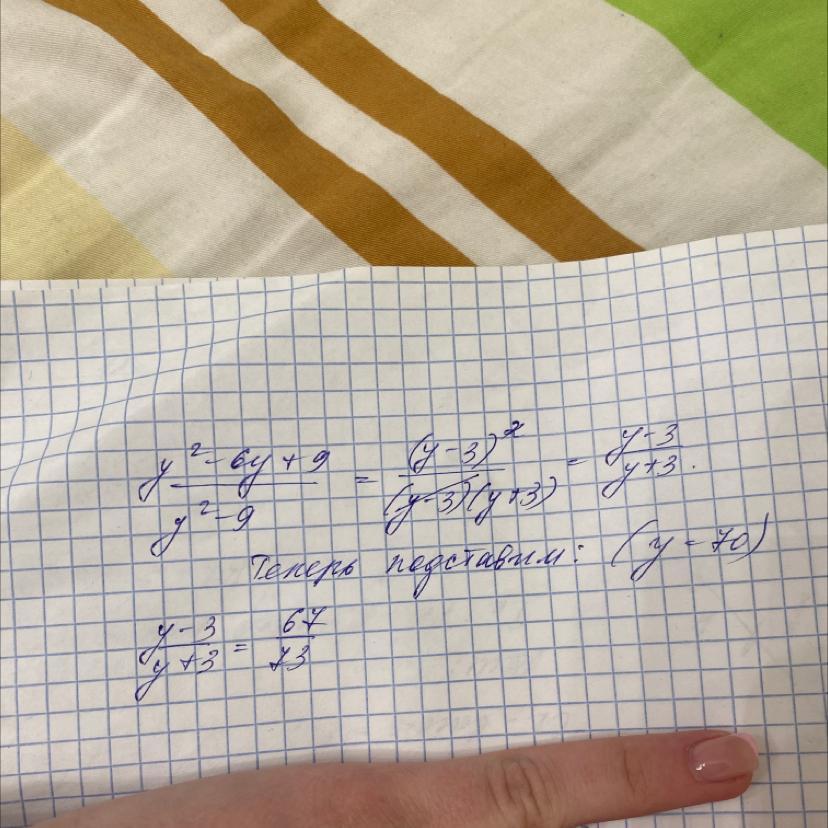 y² - 6y + 9 / y² - 9 = (y - 3)² / (y - 3)(y + 3) = y - 3 / y + 3.
Теперь подставим: (y = 70)
y - 3 / y + 3 = 67 / 73